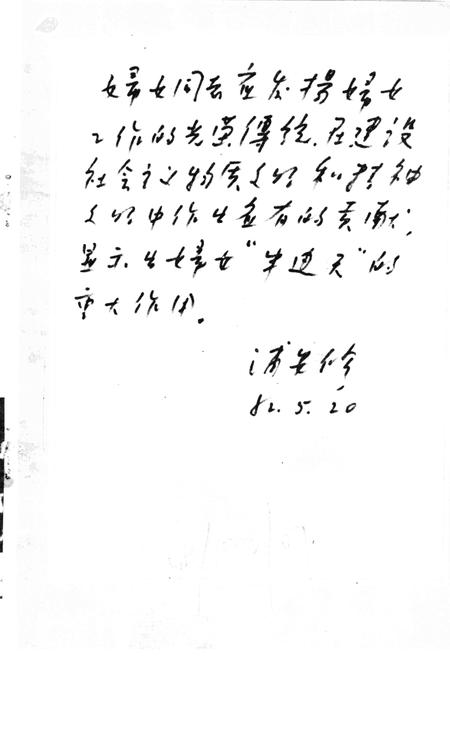 婦女同志应发揚婦女
工作的光荣傳统，在建设
社会主义物质文明和精神
文明中作出应有的贡献，
显示出婦女“半边天”的
重大作用。
浦安修
82.5.20